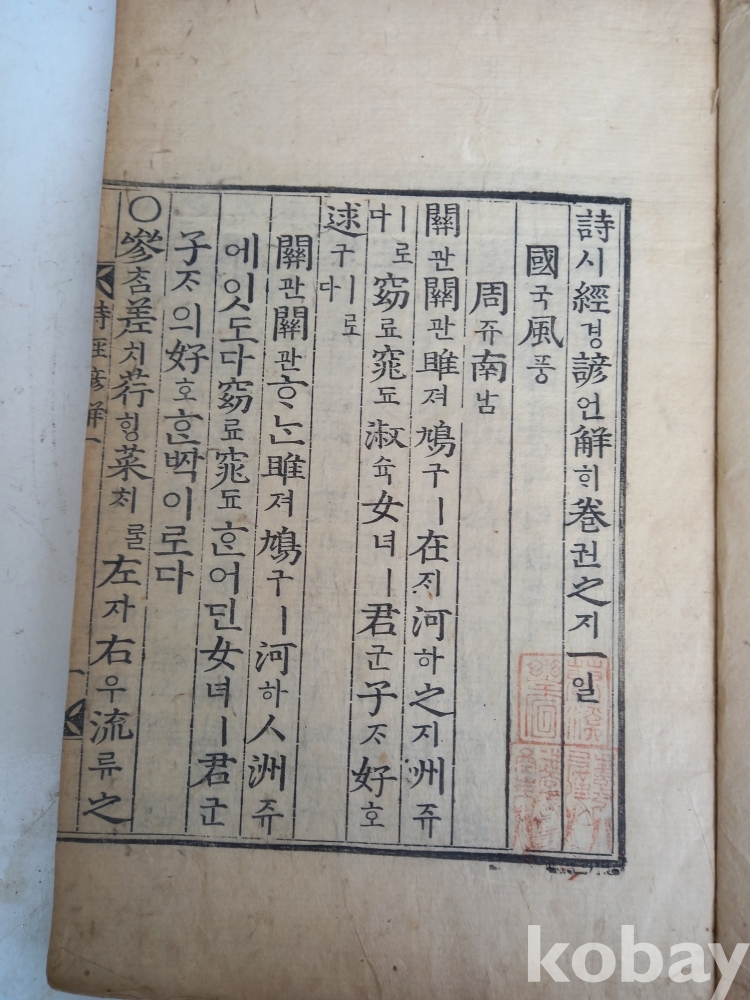 詩시經경諺언解ᄒᆡ卷권之지一일
國국風풍
周쥬南남
關관關관雎져鳩구ㅣ在ᄌᆡ河하之지洲쥬
ㅣ로다窈료窕됴淑슉女녀ㅣ君군子ᄌᆞ好호
逑구ㅣ로다
關관關관ᄒᆞᄂᆞᆫ雎져鳩구ㅣ河하ㅅ洲쥬
에잇도다窈료窕됴ᄒᆞᆫ어딘女녀ㅣ君군
子ᄌᆞ의好호ᄒᆞᆫᄧᅡᆨ이로다
○參ᄎᆞᆷ差치荇ᄒᆡᆼ菜ᄎᆡ룰左자右우流류之
詩經諺解一
一
kobay